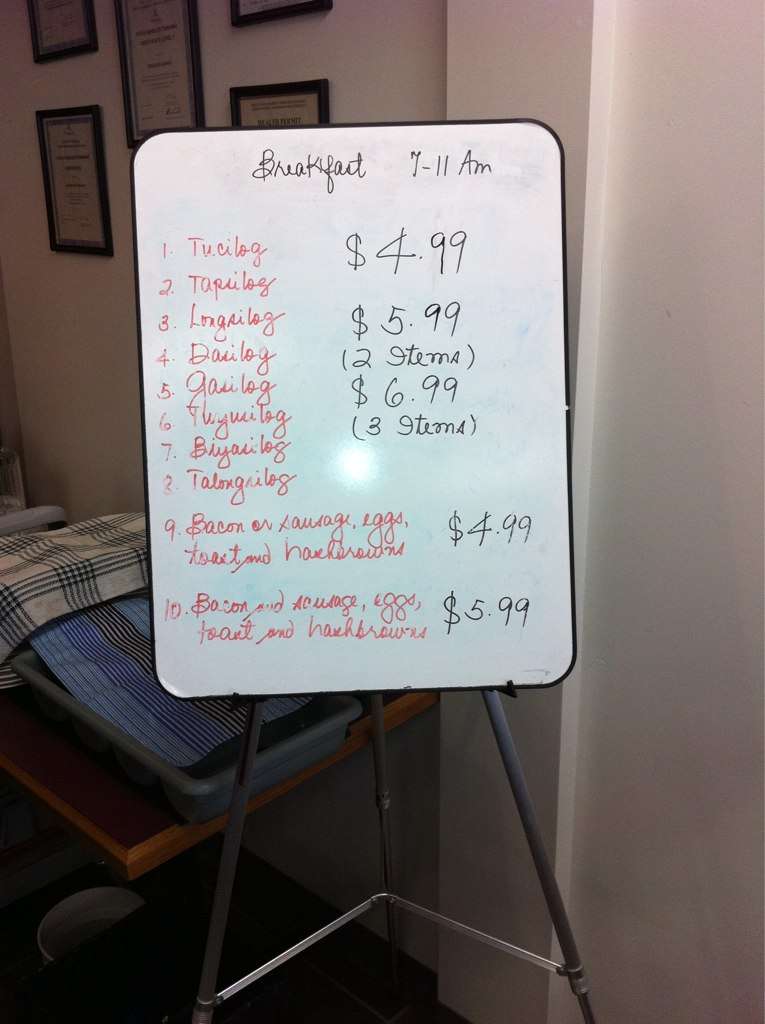 Breakfast 7-11 Am
1. Tucilog $4.99
2. Tapsilog
3. Longsilog $5.99
4. Dasilog (2 Items)
5. Gasilog $6.99
6. Tuyusilog (3 Items)
7. Biyasilog
8. Talongsilog
9. Bacon or sausage, eggs, $4.99
toast, and hashbrowns
10. Bacon and sausage, eggs, $5.99
toast, and hashbrowns
HEALTH PERMIT